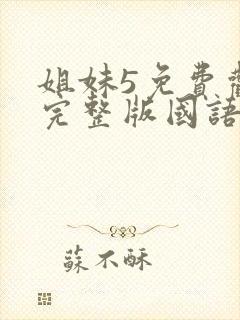 姐妹5免費
完整版國語
蘇不酥